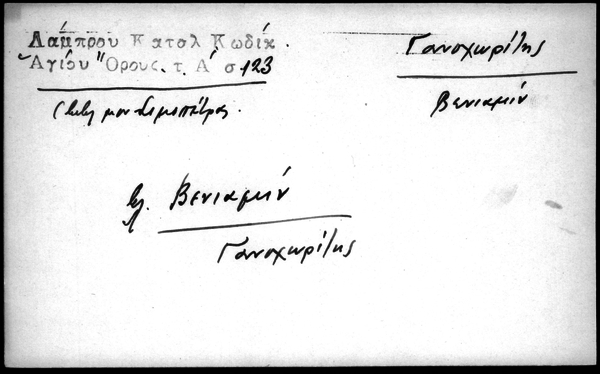 Λάμπρου Κατσλ Κωδίκ.
Ἁγίου Ὄρους. τ. Α΄ σ 123
Γανοχωρίτης
Βενιαμίν
βλ. Βενιαμίν
Γανοχωρίτης